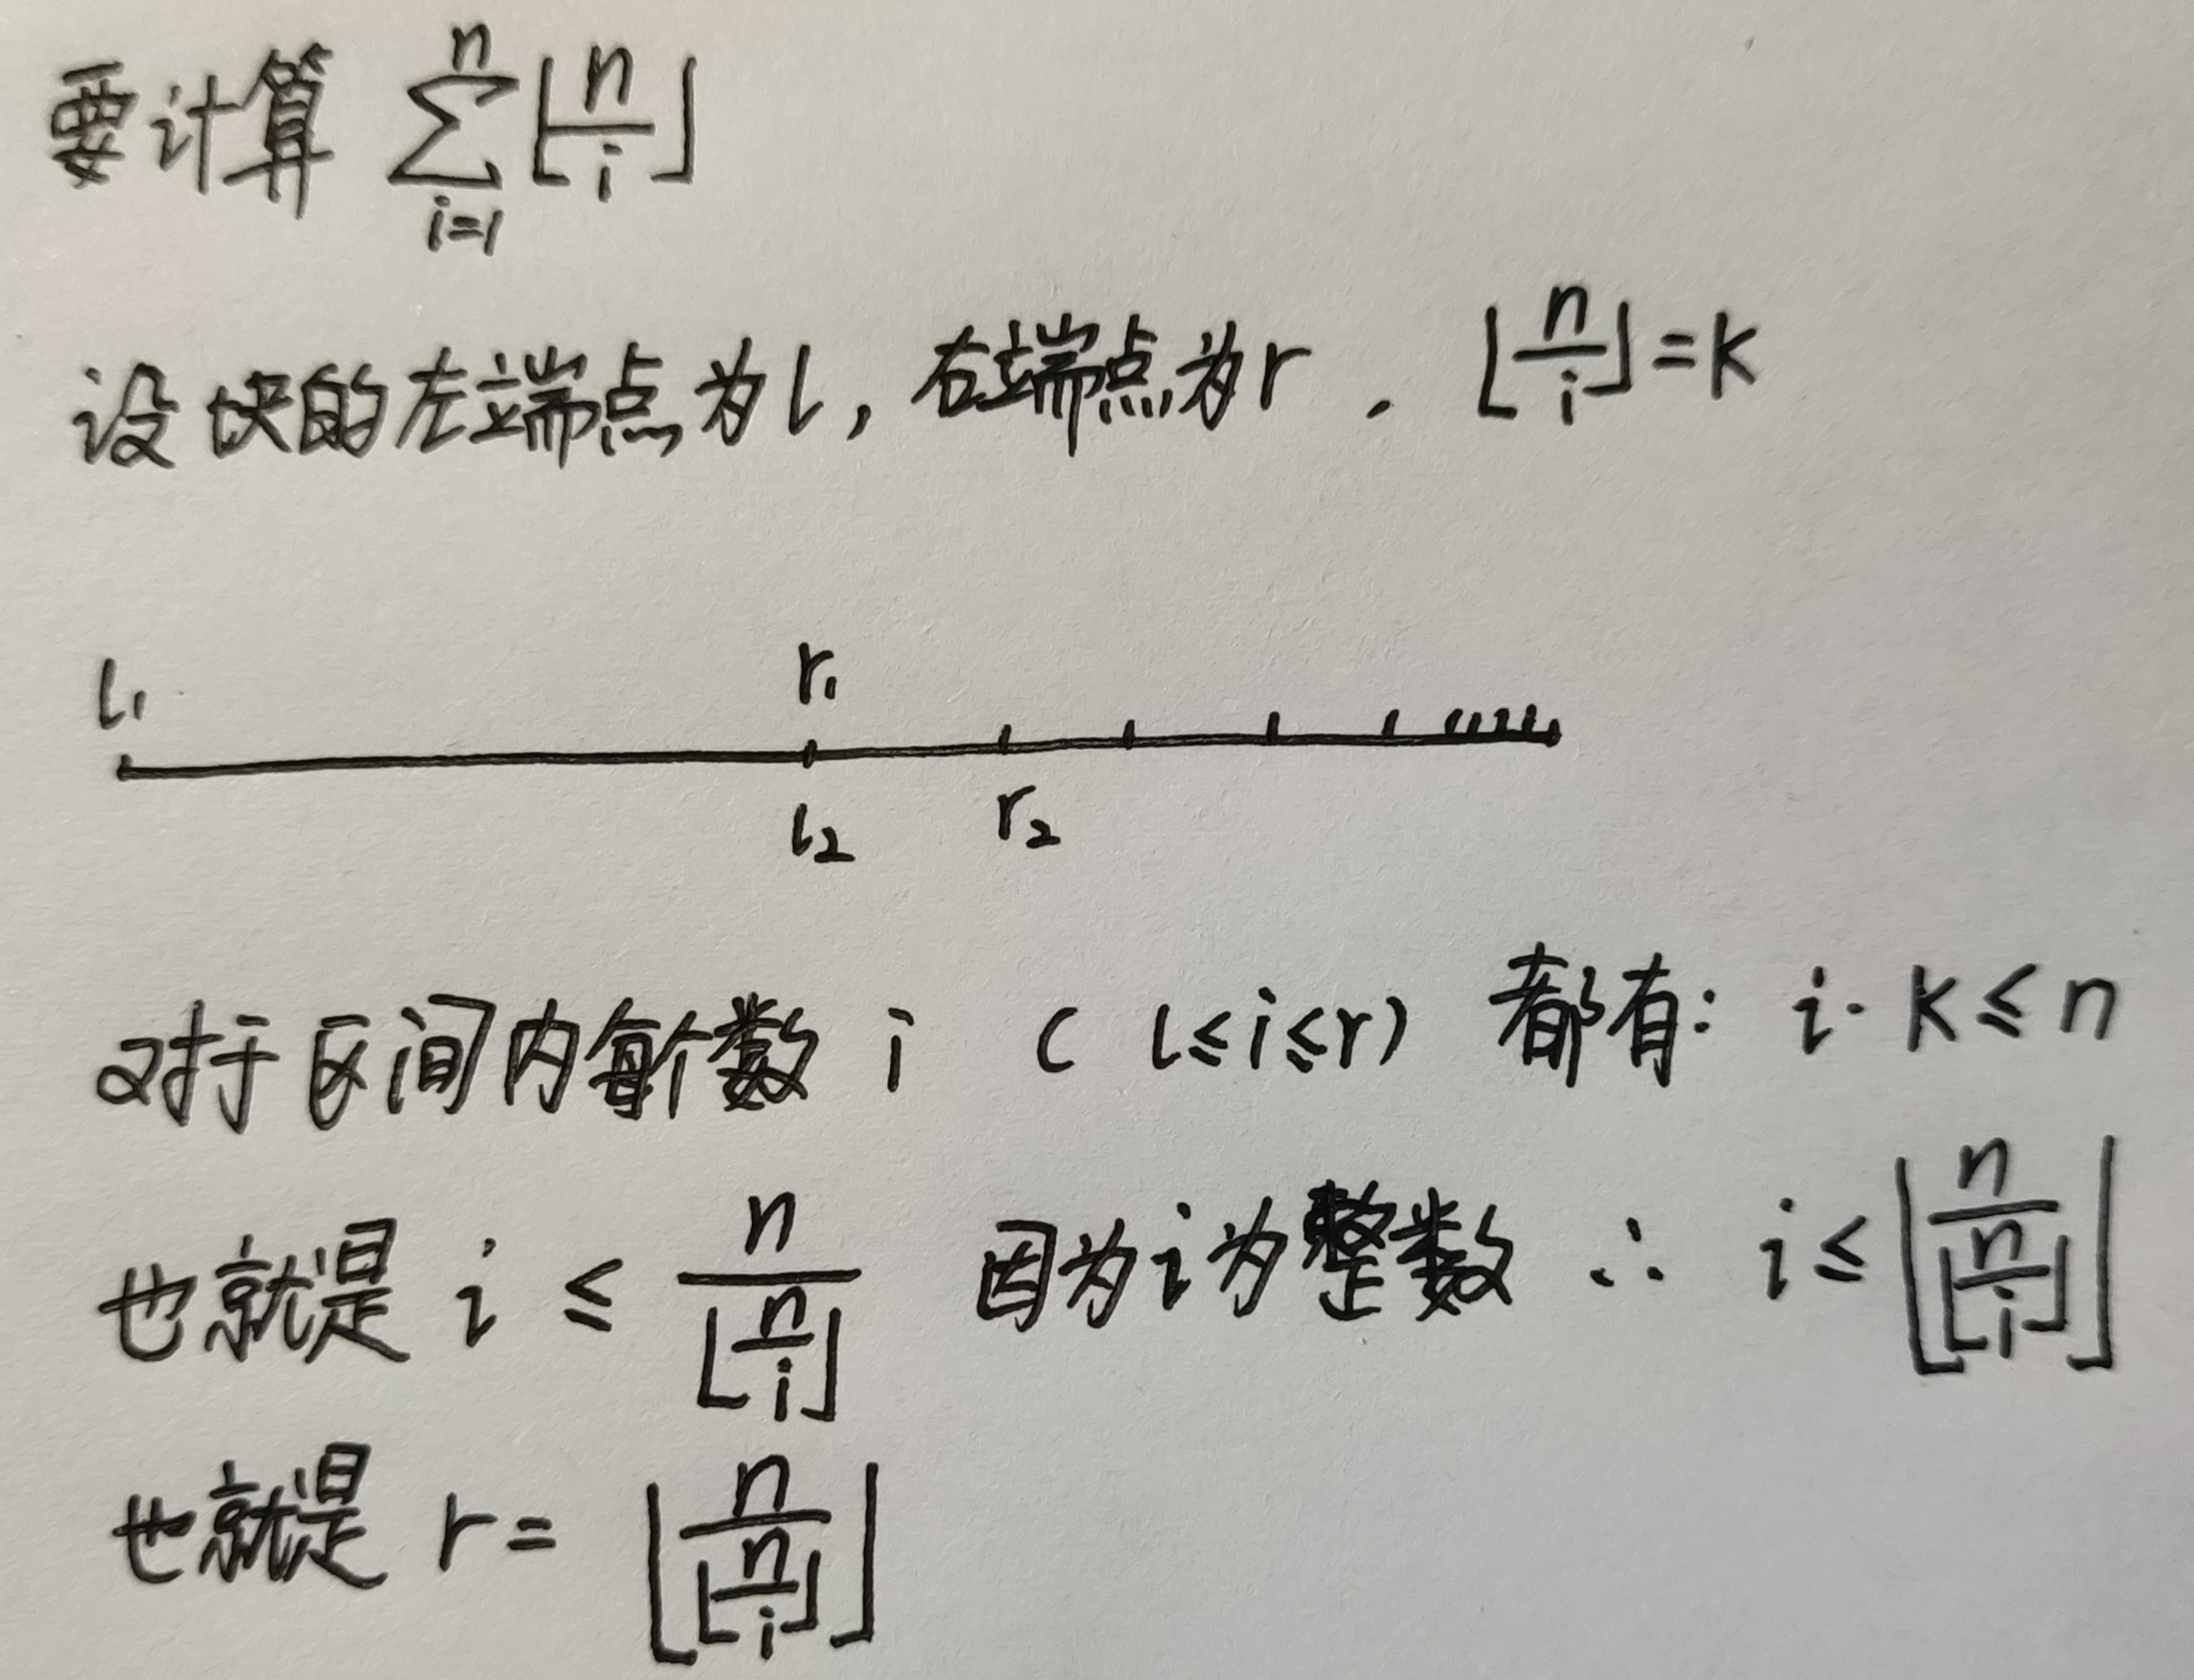 要计算 \sum_{i=1}^{n} ⌊\frac{n}{i}⌋
设块的左端点为l，右端点为r . ⌊\frac{n}{i}⌋=k
l₁ r₁
l₂ r₂
对于区间内每个数 i ( l≤i≤r) 都有: i·k≤n
也就是 i ≤ \frac{n}{⌊\frac{n}{i}⌋} 因为i为整数 ∴ i≤⌊\frac{n}{⌊\frac{n}{i}⌋}⌋
也就是 r= ⌊\frac{n}{⌊\frac{n}{i}⌋}⌋